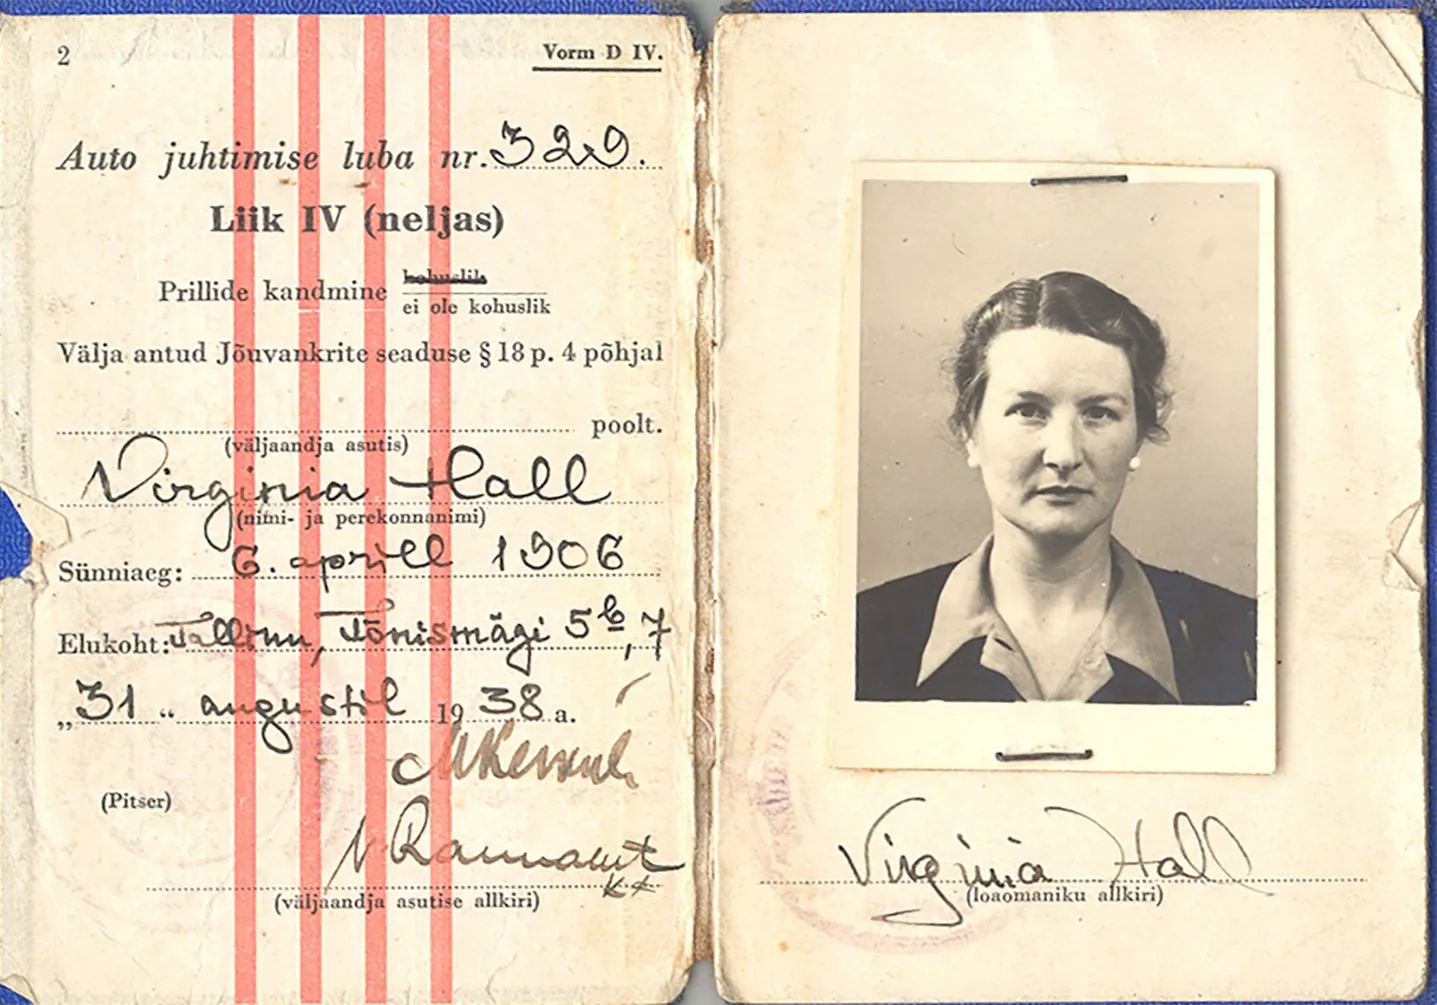 2
Vorm D IV.
Auto juhtimise luba nr. 329.
Liik IV (neljas)
Prillide kandmine kohuslik
ei ole kohuslik
Välja antud Jõuvankrite seaduse § 18 p. 4 põhjal
poolt.
(väljaandja asutis)
Virginia Hall
(nimi- ja perekonnanimi)
Sünniaeg: 6. aprill 1906
Elukoht: Tallinn, Tõnismägi 5b, 7
„31“ augustil 1938 a.
(Pitser)
(väljaandja asutise allkiri)
Virginia Hall
(loaomaniku allkiri)